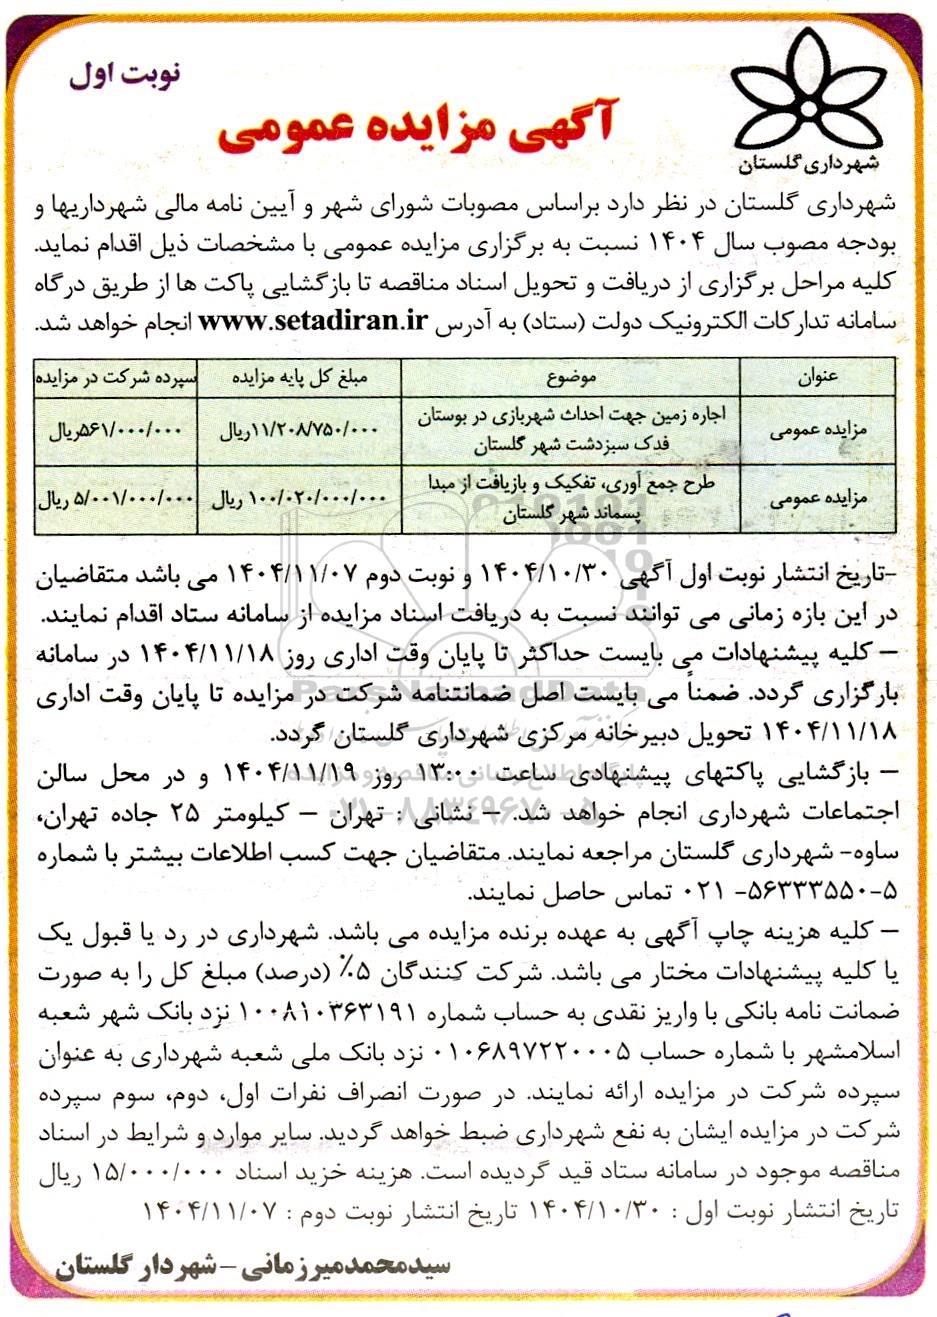 نوبت اول
آگهی مزایده عمومی
شهرداری گلستان
شهرداری گلستان در نظر دارد براساس مصوبات شورای شهر و آیین نامه مالی شهرداریها و
بودجه مصوب سال ۱۴۰۴ نسبت به برگزاری مزایده عمومی با مشخصات ذیل اقدام نماید.
کلیه مراحل برگزاری از دریافت و تحویل اسناد مناقصه تا بازگشایی پاکت ها از طریق درگاه
سامانه تدارکات الکترونیک دولت (ستاد) به آدرس www.setadiran.ir انجام خواهد شد.
عنوان موضوع مبلغ کل پایه مزایده سپرده شرکت در مزایده
مزایده عمومی اجاره زمین جهت احداث شهربازی در بوستان ۱۱/۲۰۸/۷۵۰/۰۰۰ریال ۵۶۱/۰۰۰/۰۰۰ریال
فدک سبزدشت شهر گلستان
مزایده عمومی طرح جمع آوری، تفکیک و بازیافت از مبدا ۱۰۰/۰۲۰/۰۰۰/۰۰۰ ریال ۵/۰۰۱/۰۰۰/۰۰۰ ریال
پسماند شهر گلستان
-تاریخ انتشار نوبت اول آگهی ۱۴۰۴/۱۰/۳۰ و نوبت دوم ۱۴۰۴/۱۱/۰۷ می باشد متقاضیان
در این بازه زمانی می توانند نسبت به دریافت اسناد مزایده از سامانه ستاد اقدام نمایند.
– کلیه پیشنهادات می بایست حداکثر تا پایان وقت اداری روز ۱۴۰۴/۱۱/۱۸ در سامانه
بارگزاری گردد. ضمناً می بایست اصل ضمانتنامه شرکت در مزایده تا پایان وقت اداری
۱۴۰۴/۱۱/۱۸ تحویل دبیرخانه مرکزی شهرداری گلستان گردد.
– بازگشایی پاکتهای پیشنهادی ساعت ۱۳:۰۰ روز ۱۴۰۴/۱۱/۱۹ و در محل سالن
اجتماعات شهرداری انجام خواهد شد. – نشانی : تهران – کیلومتر ۲۵ جاده تهران،
ساوه- شهرداری گلستان مراجعه نمایند. متقاضیان جهت کسب اطلاعات بیشتر با شماره
۵-۵۶۳۳۳۵۵۰- ۰۲۱ تماس حاصل نمایند.
– کلیه هزینه چاپ آگهی به عهده برنده مزایده می باشد. شهرداری در رد یا قبول یک
یا کلیه پیشنهادات مختار می باشد. شرکت کنندگان ۵٪ (درصد) مبلغ کل را به صورت
ضمانت نامه بانکی با واریز نقدی به حساب شماره ۱۰۰۸۱۰۳۶۳۱۹۱ نزد بانک شهر شعبه
اسلامشهر با شماره حساب ۰۱۰۶۸۹۷۲۲۰۰۰۵ نزد بانک ملی شعبه شهرداری به عنوان
سپرده شرکت در مزایده ارائه نمایند. در صورت انصراف نفرات اول، دوم، سوم سپرده
شرکت در مزایده ایشان به نفع شهرداری ضبط خواهد گردید. سایر موارد و شرایط در اسناد
مناقصه موجود در سامانه ستاد قید گردیده است. هزینه خرید اسناد ۱۵/۰۰۰/۰۰۰ ریال
تاریخ انتشار نوبت اول : ۱۴۰۴/۱۰/۳۰ تاریخ انتشار نوبت دوم : ۱۴۰۴/۱۱/۰۷
سیدمحمدمیرزمانی – شهردار گلستان
ParsNamadData
۰۲۱-۸۸۳۴۹۶۷۰-۵